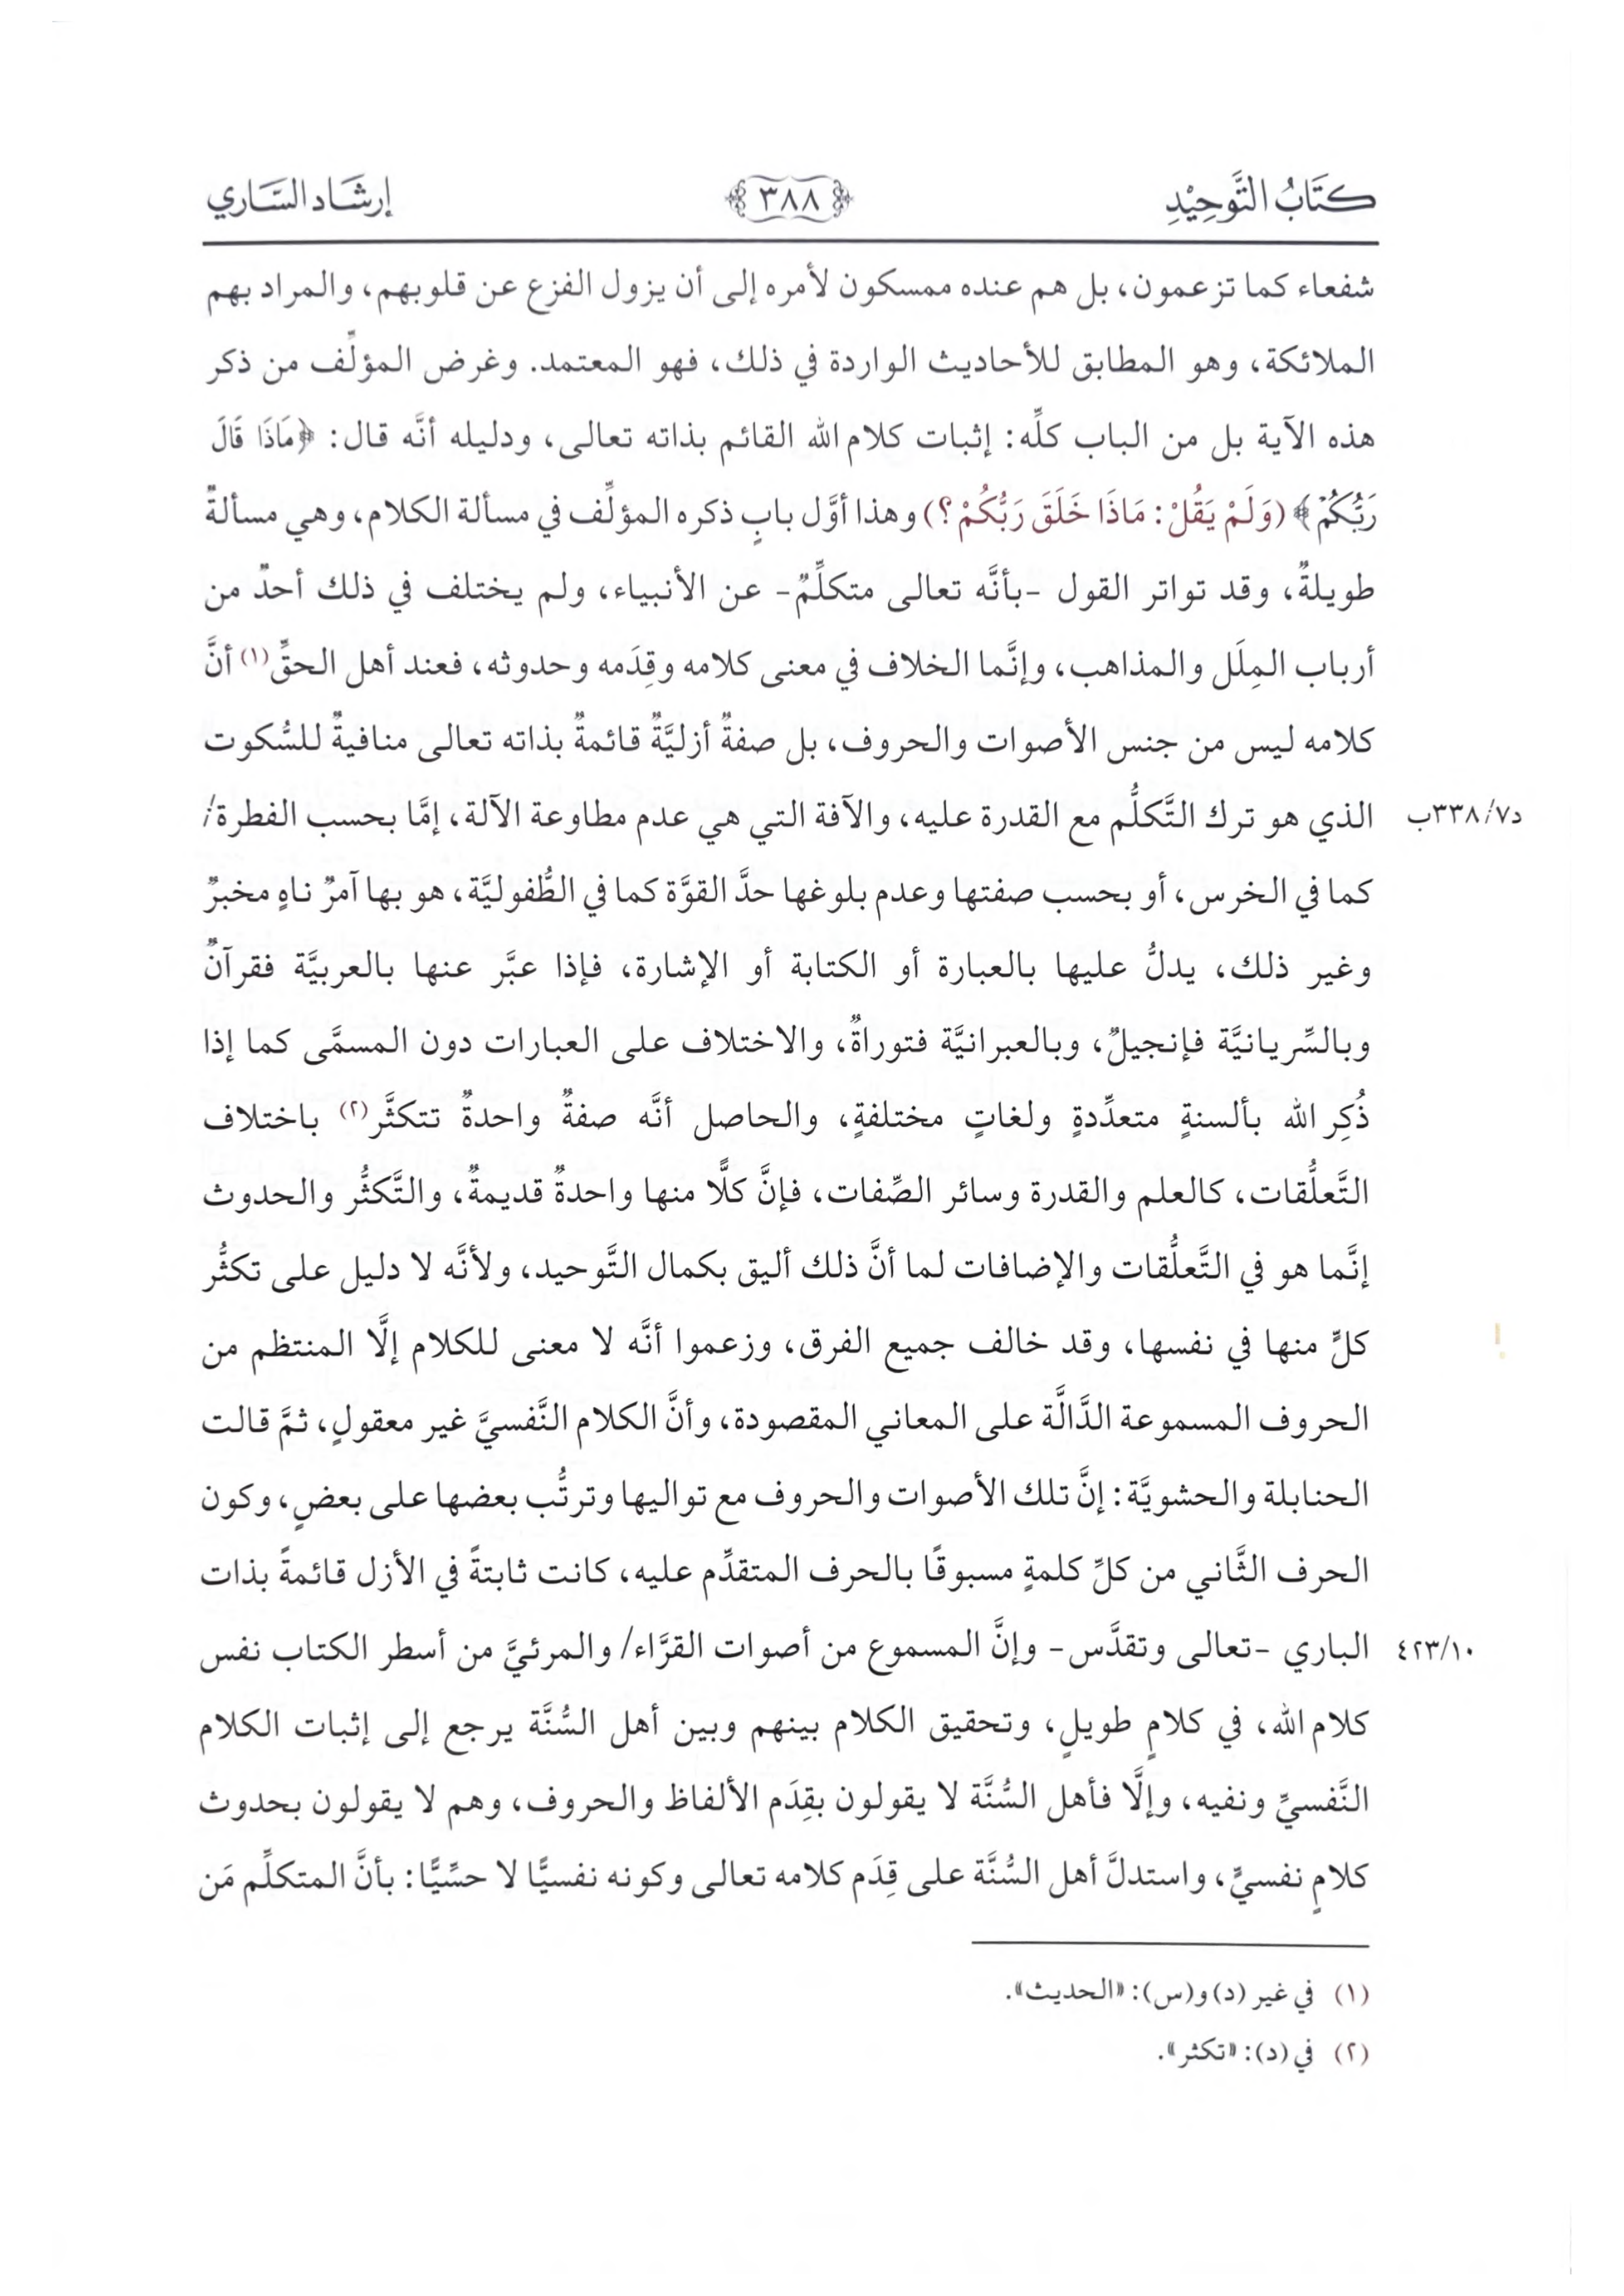 كِتَابُ التَّوحِيْدِ
٣٨٨
إرشَاد السَّاري
شفعاء كما تزعمون، بل هم عنده ممسكون لأمره إلى أن يزول الفزع عن قلوبهم، والمراد بهم
الملائكة، وهو المطابق للأحاديث الواردة في ذلك، فهو المعتمد. وغرض المؤلِّف من ذكر
هذه الآية بل من الباب كلِّه: إثبات كلام الله القائم بذاته تعالى، ودليله أنَّه قال: ﴿مَاذَا قَالَ
رَبُّكُمْ﴾ (وَلَمْ يَقُلْ: مَاذَا خَلَقَ رَبُّكُمْ؟) وهذا أوَّل بابٍ ذكره المؤلِّف في مسألة الكلام، وهي مسألةٌ
طويلةٌ، وقد تواتر القول -بأنَّه تعالى متكلِّمٌ- عن الأنبياء، ولم يختلف في ذلك أحدٌ من
أرباب المِلَل والمذاهب، وإنَّما الخلاف في معنى كلامه وقِدَمه وحدوثه، فعند أهل الحقِّ(١) أنَّ
كلامه ليس من جنس الأصوات والحروف، بل صفةٌ أزليَّةٌ قائمةٌ بذاته تعالى منافيةٌ للسُّكوت
الذي هو ترك التَّكلُّم مع القدرة عليه، والآفة التي هي عدم مطاوعة الآلة، إمَّا بحسب الفطرة/
د٣٣٨/٧ب
كما في الخرس، أو بحسب صفتها وعدم بلوغها حدَّ القوَّة كما في الطُّفوليَّة، هو بها آمرٌ ناهٍ مخبرٌ
وغير ذلك، يدلُّ عليها بالعبارة أو الكتابة أو الإشارة، فإذا عبَّر عنها بالعربيَّة فقرآنٌ
وبالسِّريانيَّة فإنجيلٌ، وبالعبرانيَّة فتوراةٌ، والاختلاف على العبارات دون المسمَّى كما إذا
ذُكِر الله بألسنةٍ متعدِّدةٍ ولغاتٍ مختلفةٍ، والحاصل أنَّه صفةٌ واحدةٌ تتكثَّر(٢) باختلاف
التَّعلُّقات، كالعلم والقدرة وسائر الصِّفات، فإنَّ كلًّا منها واحدةٌ قديمةٌ، والتَّكثُّر والحدوث
إنَّما هو في التَّعلُّقات والإضافات لما أنَّ ذلك أليق بكمال التَّوحيد، ولأنَّه لا دليل على تكثُّر
كلٍّ منها في نفسها، وقد خالف جميع الفرق، وزعموا أنَّه لا معنى للكلام إلَّا المنتظم من
الحروف المسموعة الدَّالَّة على المعاني المقصودة، وأنَّ الكلام النَّفسيَّ غير معقولٍ، ثمَّ قالت
الحنابلة والحشويَّة: إنَّ تلك الأصوات والحروف مع تواليها وترتُّب بعضها على بعضٍ، وكون
الحرف الثَّاني من كلِّ كلمةٍ مسبوقًا بالحرف المتقدِّم عليه، كانت ثابتةً في الأزل قائمةً بذات
الباري -تعالى وتقدَّس- وإنَّ المسموع من أصوات القرَّاء/ والمرئيَّ من أسطر الكتاب نفس
٤٢٣/١٠
كلام الله، في كلامٍ طويلٍ، وتحقيق الكلام بينهم وبين أهل السُّنَّة يرجع إلى إثبات الكلام
النَّفسيِّ ونفيه، وإلَّا فأهل السُّنَّة لا يقولون بقِدَم الألفاظ والحروف، وهم لا يقولون بحدوث
كلامٍ نفسيٍّ، واستدلَّ أهل السُّنَّة على قِدَم كلامه تعالى وكونه نفسيًّا لا حسِّيًّا: بأنَّ المتكلِّم مَن
(١) في غير (د) و(س): «الحديث».
(٢) في (د): «تكثر».